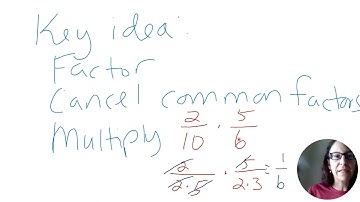 Key idea:
Factor
Cancel common factors
Multiply 2/10 · 5/6
2/2·5 · 5/2·3 = 1/6